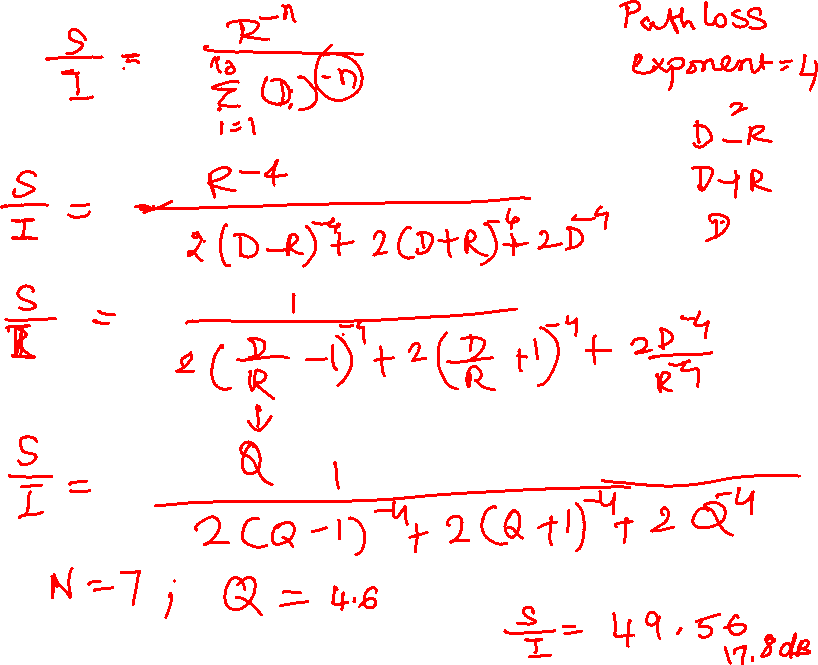 S/I = R^-n / Σ_{i=1}^{i0} (D_i)^-n
Path loss
exponent = 4
2
D-R
D+R
D
S/I = R^-4 / 2(D-R)^-4 + 2(D+R)^-4 + 2D^-4
S/I = 1 / 2(D/R - 1)^-4 + 2(D/R + 1)^-4 + 2D^-4/R^-4
↓
Q
S/I = 1 / 2(Q-1)^-4 + 2(Q+1)^-4 + 2Q^-4
N = 7 ; Q = 4.6
S/I = 49.56
17.8 dB